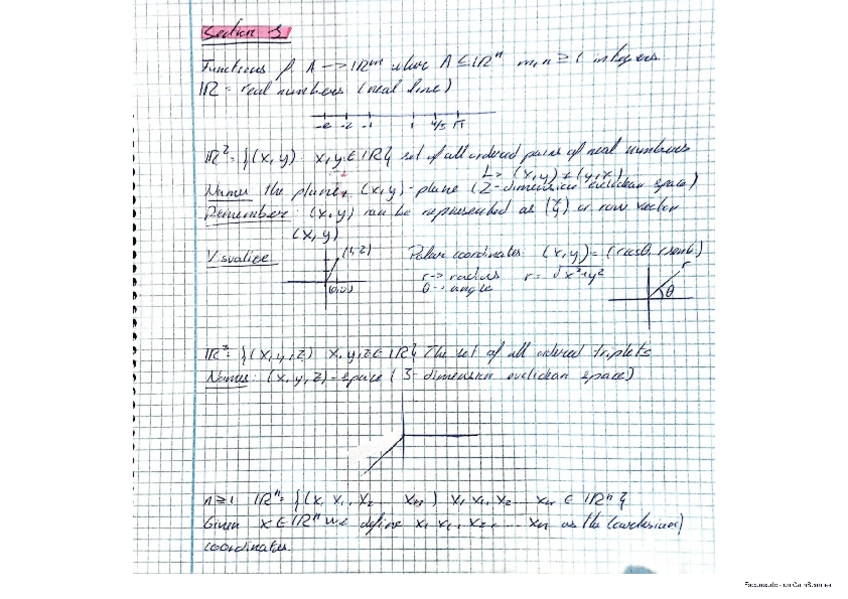 Section 1
Functions f: A → ℝᵐ where A ⊆ ℝⁿ m,n ≥ 1 integers
ℝ = real numbers (real line)
-e -2 -1 1 4/3 π
ℝ² = {(x,y) x,y ∈ ℝ} set of all ordered pairs of real numbers
↳ (x,y) ≠ (y,x)
Names the plane, (x,y)-plane (2-dimension euclidean space)
Remember: (x,y) can be represented as (x y) or row vector
(x,y)
Visualize (1,2) Polar coordinates (x,y) = (rcosθ, rsinθ)
r → radius r = √x²+y² r
θ → angle θ
(0,0)
ℝ³ = {(x,y,z) x,y,z ∈ ℝ} The set of all ordered triplets
Names: (x,y,z)-space (3-dimension euclidean space)
n ≥ 1 ℝⁿ = {(x, x₁, x₂ ... xₙ) x, x₁, x₂ ... xₙ ∈ ℝⁿ}
Given x ∈ ℝⁿ we define x, x₁, x₂, ... xₙ as the (cartesian)
coordinates.